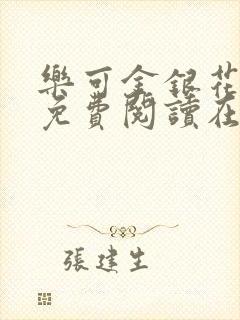 樂可金銀花
免費閱讀在
張建生